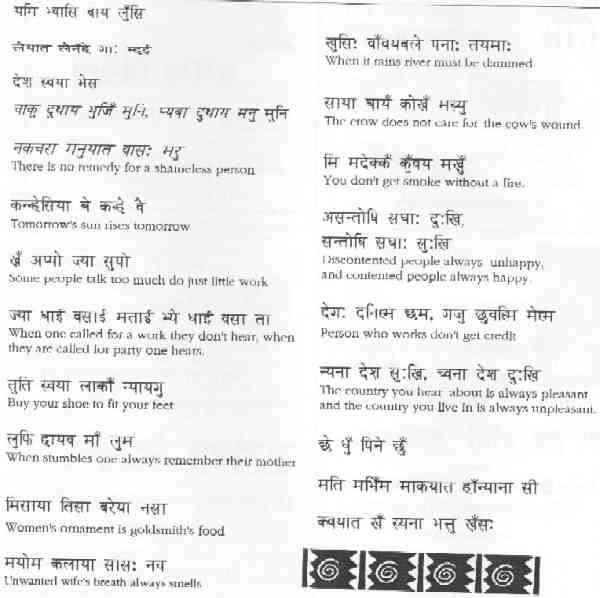 यगि भ्यासि बाय लुँसि
देश स्वया भेस
वाकू दुथाय भुजिँ मुनि, प्यवा दुथाय मनु मुनि
नकचरा मनुयात वासः मरु
There is no remedy for a shameless person
कन्हेसिया बे कन्हे वै
Tomorrow's sun rises tomorrow
खँ अप्पो ज्या सुपो
Some people talk too much do just little work
ज्या धाई वसाई मताई भ्वे धाई वसा ता
When one called for a work they don't hear, when
they are called for party one hears.
तुति स्वया लाकाँ न्यायगु
Buy your shoe to fit your feet
लुफि द्दायव माँ लुम
When stumbles one always remember their mother
मिसाया तिसा बरेया नसा
Women's ornament is goldsmith's food
मयोम कलाया सासः नव
Unwanted wife's breath always smells
खुसिः वाँवयबले पनाः तयमाः
When it rains river must be damned
साया घायँ कोखँ मस्यु
The crow does not care for the cow's wound
मि मदेक्कँ कुँवय मखुँ
You don't get smoke without a fire.
असन्तोषि सधाः दुःखि,
सन्तोषि सधाः सुःखि
Discontented people always unhappy,
and contented people always happy.
देगः दनिम्ह छम, गजु छुवम्हि मेम्ह
Person who works don't get credit
न्यना देश सुःखि, च्वना देश दुःखि
The country you hear about is always pleasant
and the country you live in is always unpleasant.
छे धुँ पिने छुँ
मति मभिँम माकयात हाँन्याना सी
क्वयात खँ स्यना भत्तु खँसः